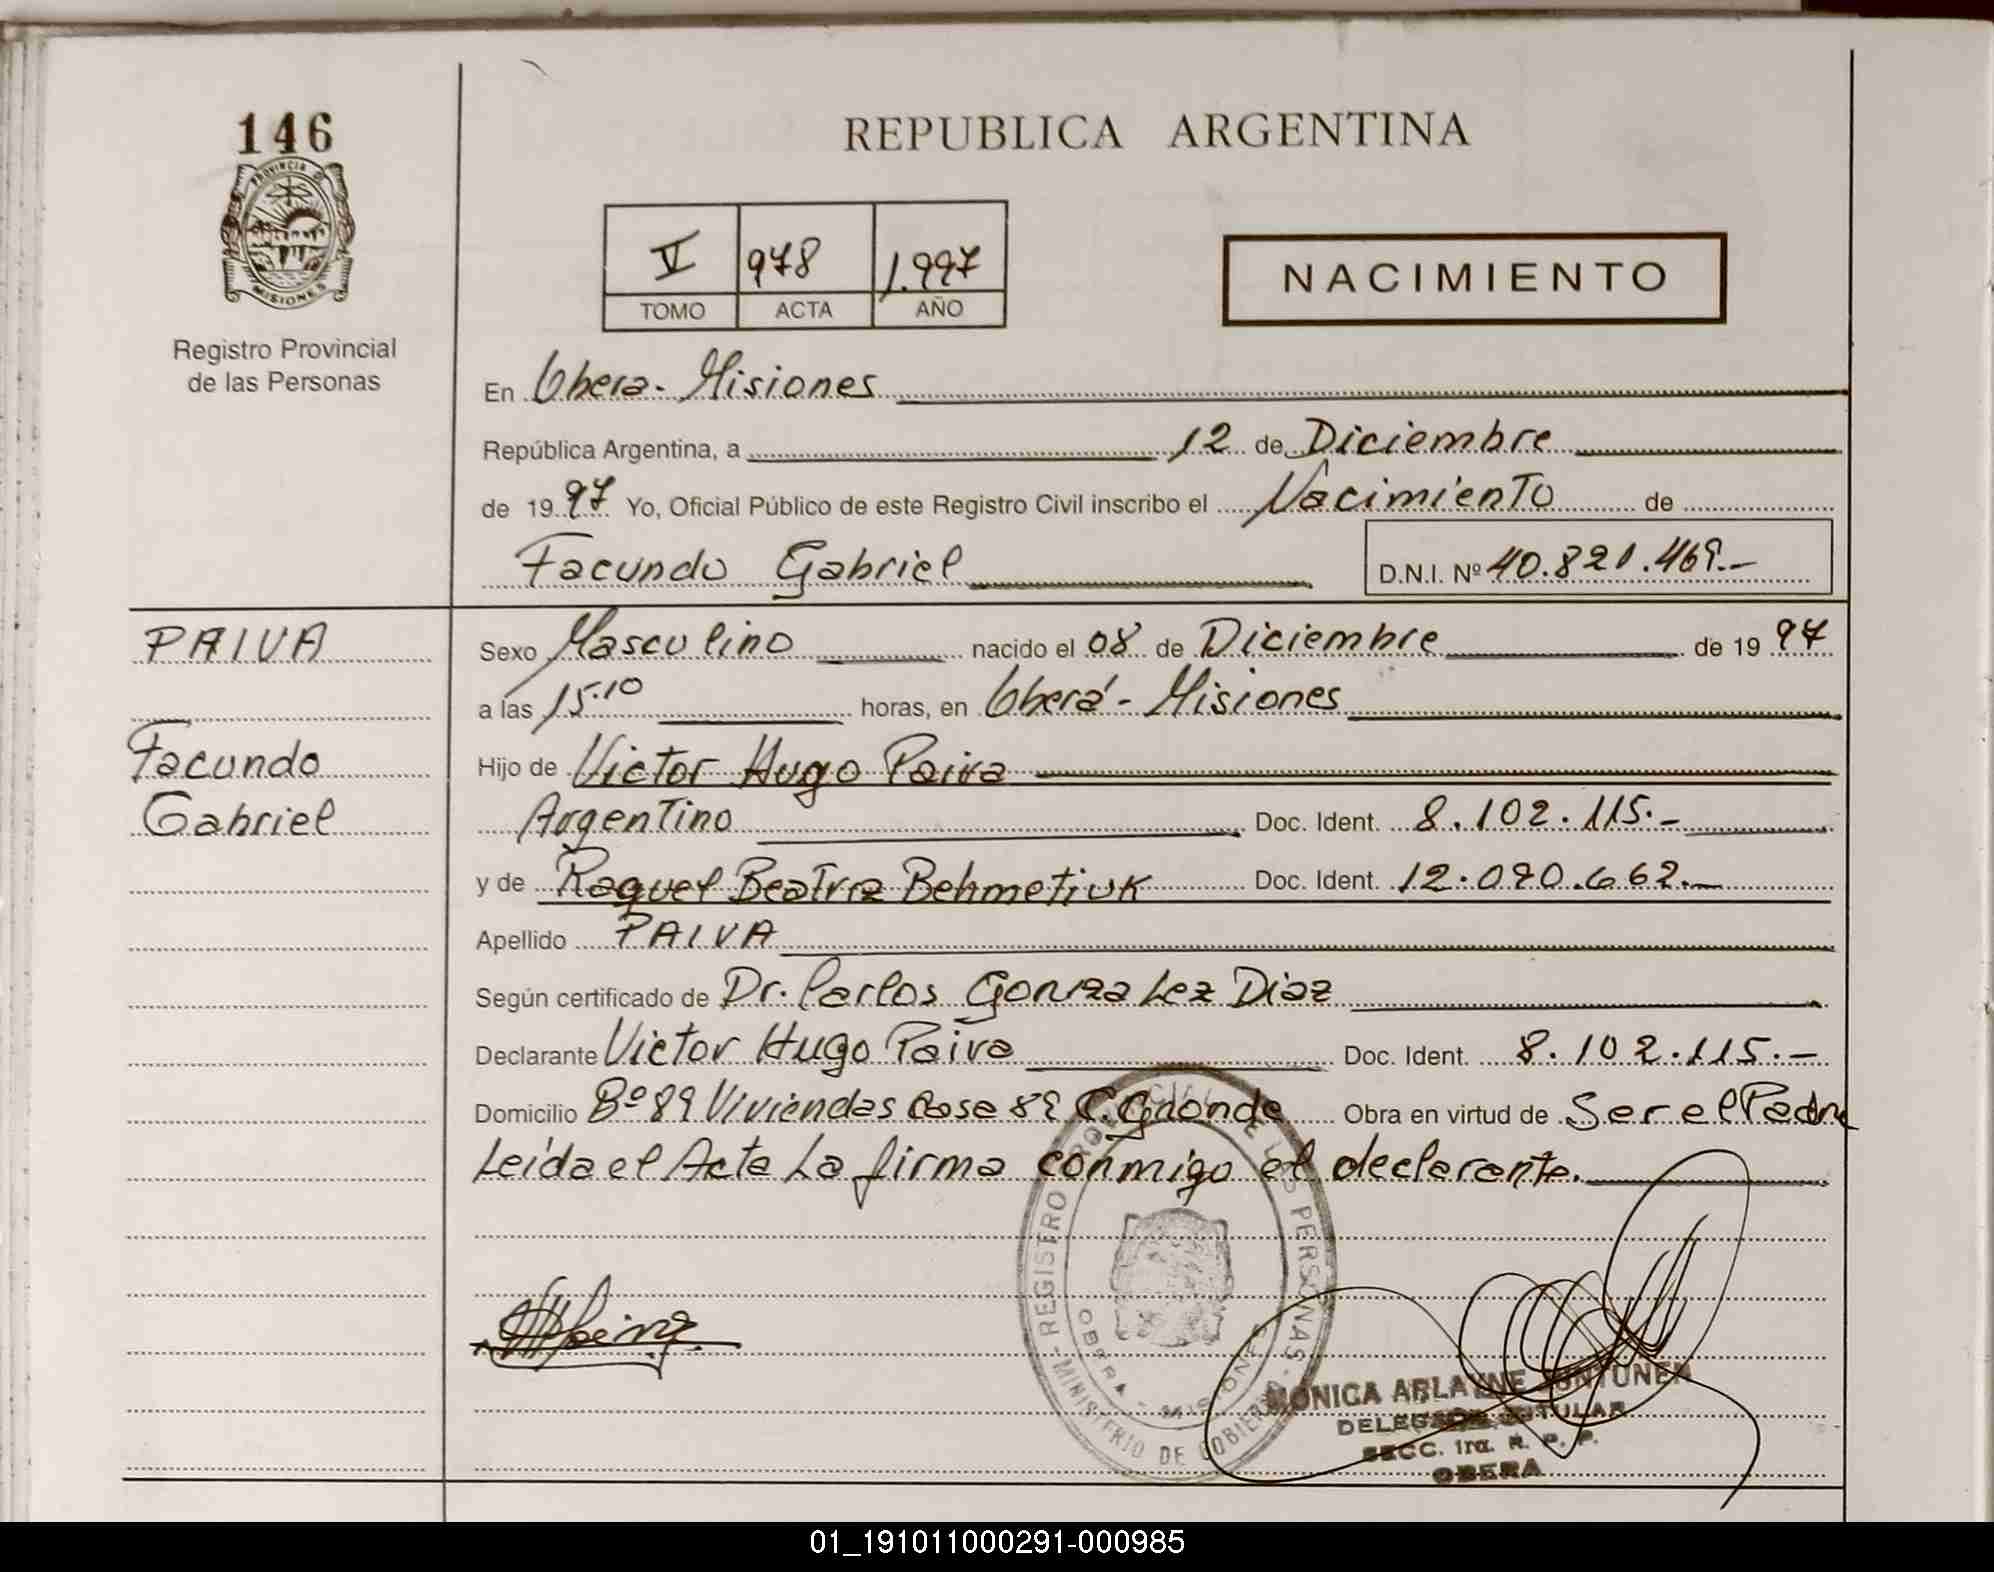 146
PROVINCIA D
MISIONES
Registro Provincial
de las Personas
REPUBLICA ARGENTINA
V 978 1.997
TOMO ACTA AÑO
NACIMIENTO
En Obera - Misiones
República Argentina, a 12 de Diciembre
de 1997 Yo, Oficial Público de este Registro Civil inscribo el Nacimiento de
Facundo Gabriel D.N.I. Nº 40.821.469.-
PAIVA
Sexo Masculino nacido el 08 de Diciembre de 1997
a las 15.10 horas, en Oberá - Misiones
Facundo
Hijo de Victor Hugo Paiva
Gabriel
Argentino Doc. Ident. 8.102.115.-
y de Raquel Beatriz Behmetiuk Doc. Ident. 12.090.662.-
Apellido PAIVA
Según certificado de Dr. Carlos Gonzalez Diaz
Declarante Victor Hugo Paiva Doc. Ident. 8.102.115.-
Domicilio Bº 89 Viviendas Casa 82 C. Grande Obra en virtud de Ser el Padre
Leída el Acta La firma conmigo el declarante.
REGISTRO PROVINCIAL DE LAS PERSONAS
MINISTERIO DE GOBIERNO
OBERA - MISIONES
MONICA ARLAYNE JUNTUNEN
DELEGADA TITULAR
SECC. 1ra. R. P. P.
OBERA
01_191011000291-000985